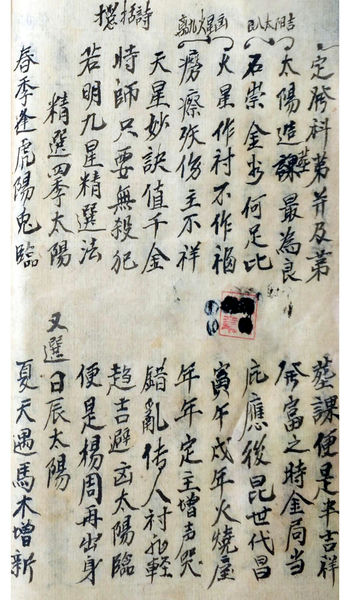 定膀科第并及第 葬課便是半吉祥
太陽造課最為良 發富之時金局當
石崇金谷何足比 庇應後昆世代昌
火星作衬不作福 寅午戌年火燒屋
癆瘵殀傷主不祥 年年定主增声哭
天星妙訣值千金 錯亂传人衬非輕
時師只要無殺犯 趋吉避凶太陽臨
若明九星精選法 便是楊周再出身
精選四季太陽 又選日辰太陽
春季逢虎陽兔臨 夏天遇馬木增新